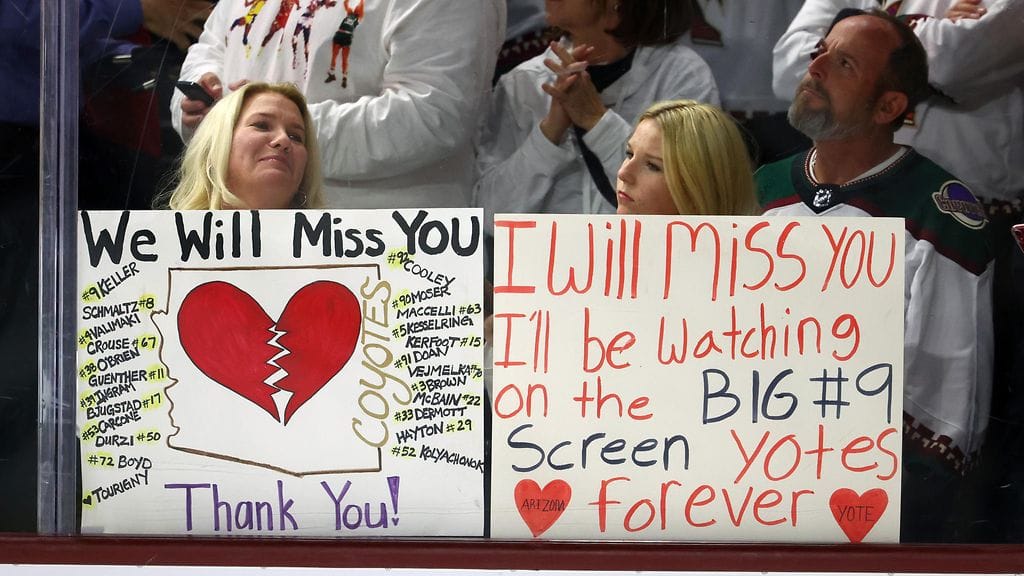 We Will Miss YOU
#9 KELLER
SCHMALTZ #8
#4 VALIMAKI
CROUSE #67
#38 O'BRIEN
GUENTHER #11
#39 INGRAM
BJUGSTAD #17
#53 CARCONE
DURZI #50
#72 BOYD
♥ TOURIGNY
COYOTES
#92 COOLEY
#90 MOSER
MACCELLI #63
#5 KESSELRING
KERFOOT #15
#91 DOAN
VEJMELKA
#3 BROWN
McBAIN #22
#33 DERMOTT
HAYTON #29
#52 KOLYACHONOK
Thank You!
I Will Miss YOU
I'll be Watching
on the BIG #9
Screen Yotes
forever
ARIZONA
YOTE